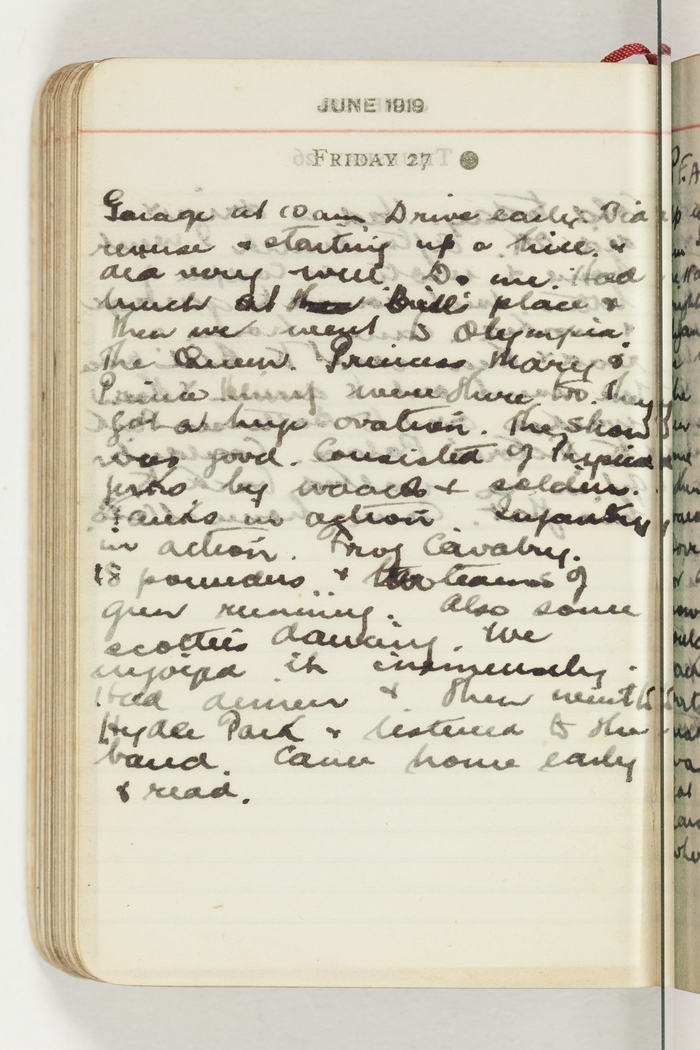 JUNE 1919
FRIDAY 27
Garage at 10 am Drive early. Did
reverse & starting up a hill. &
did very well. Do me. Had
lunch at Bill's place &
then we went to Olympia.
The Queen. Princess Mary &
Prince Henry were there too. They
got a huge ovation. The show
was good. Consisted of
by waacs & soldiers.
Tanks in action Infantry
in action. Troy Cavalry.
18 pounders & two teams of
gun running. Also some
scotties dancing. We
injoyed it immensely.
Had dinner & then went to
Hyde Park & listened to the
band. Came home early
& read.